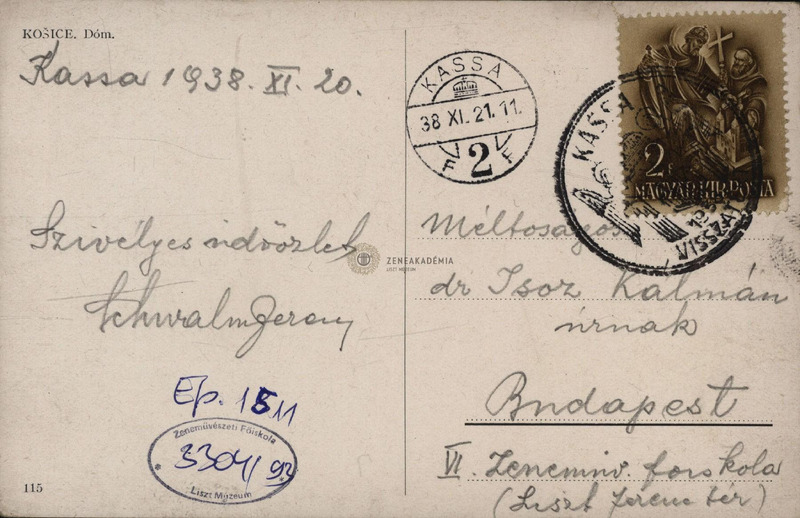 KOŠICE. Dóm.
Kassa 1938. XI. 20.
Szívélyes üdvözlet
Schwalm Jeromy
Ep. 1511
Zeneművészeti Főiskola
3304/92
Liszt Múzeum
115
KASSA
38 XI. 21. 11.
F 2 F
KASSA
VISSZA
2 f
MAGYAR KIR. POSTA
ZENEAKADÉMIA
LISZT MÚZEUM
Méltóságos
dr Isoz Kálmán
úrnak
Budapest
VI. Zeneműv. főiskola
(Liszt Ferenc tér)